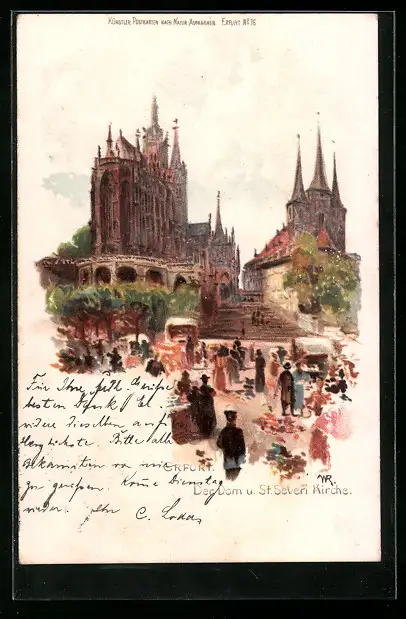 KÜNSTLER-POSTKARTEN NACH NATUR AUFNAHMEN. ERFURT No 16
Für Ihre frdl. Grüße
besten Dank
dieselben aufs
Herzlichste. Bitte alle
Bekannten von mir
zu grüßen. Komme Dienstag
wieder. Ihr C.
ERFURT.
Der Dom u. St. Severi Kirche.